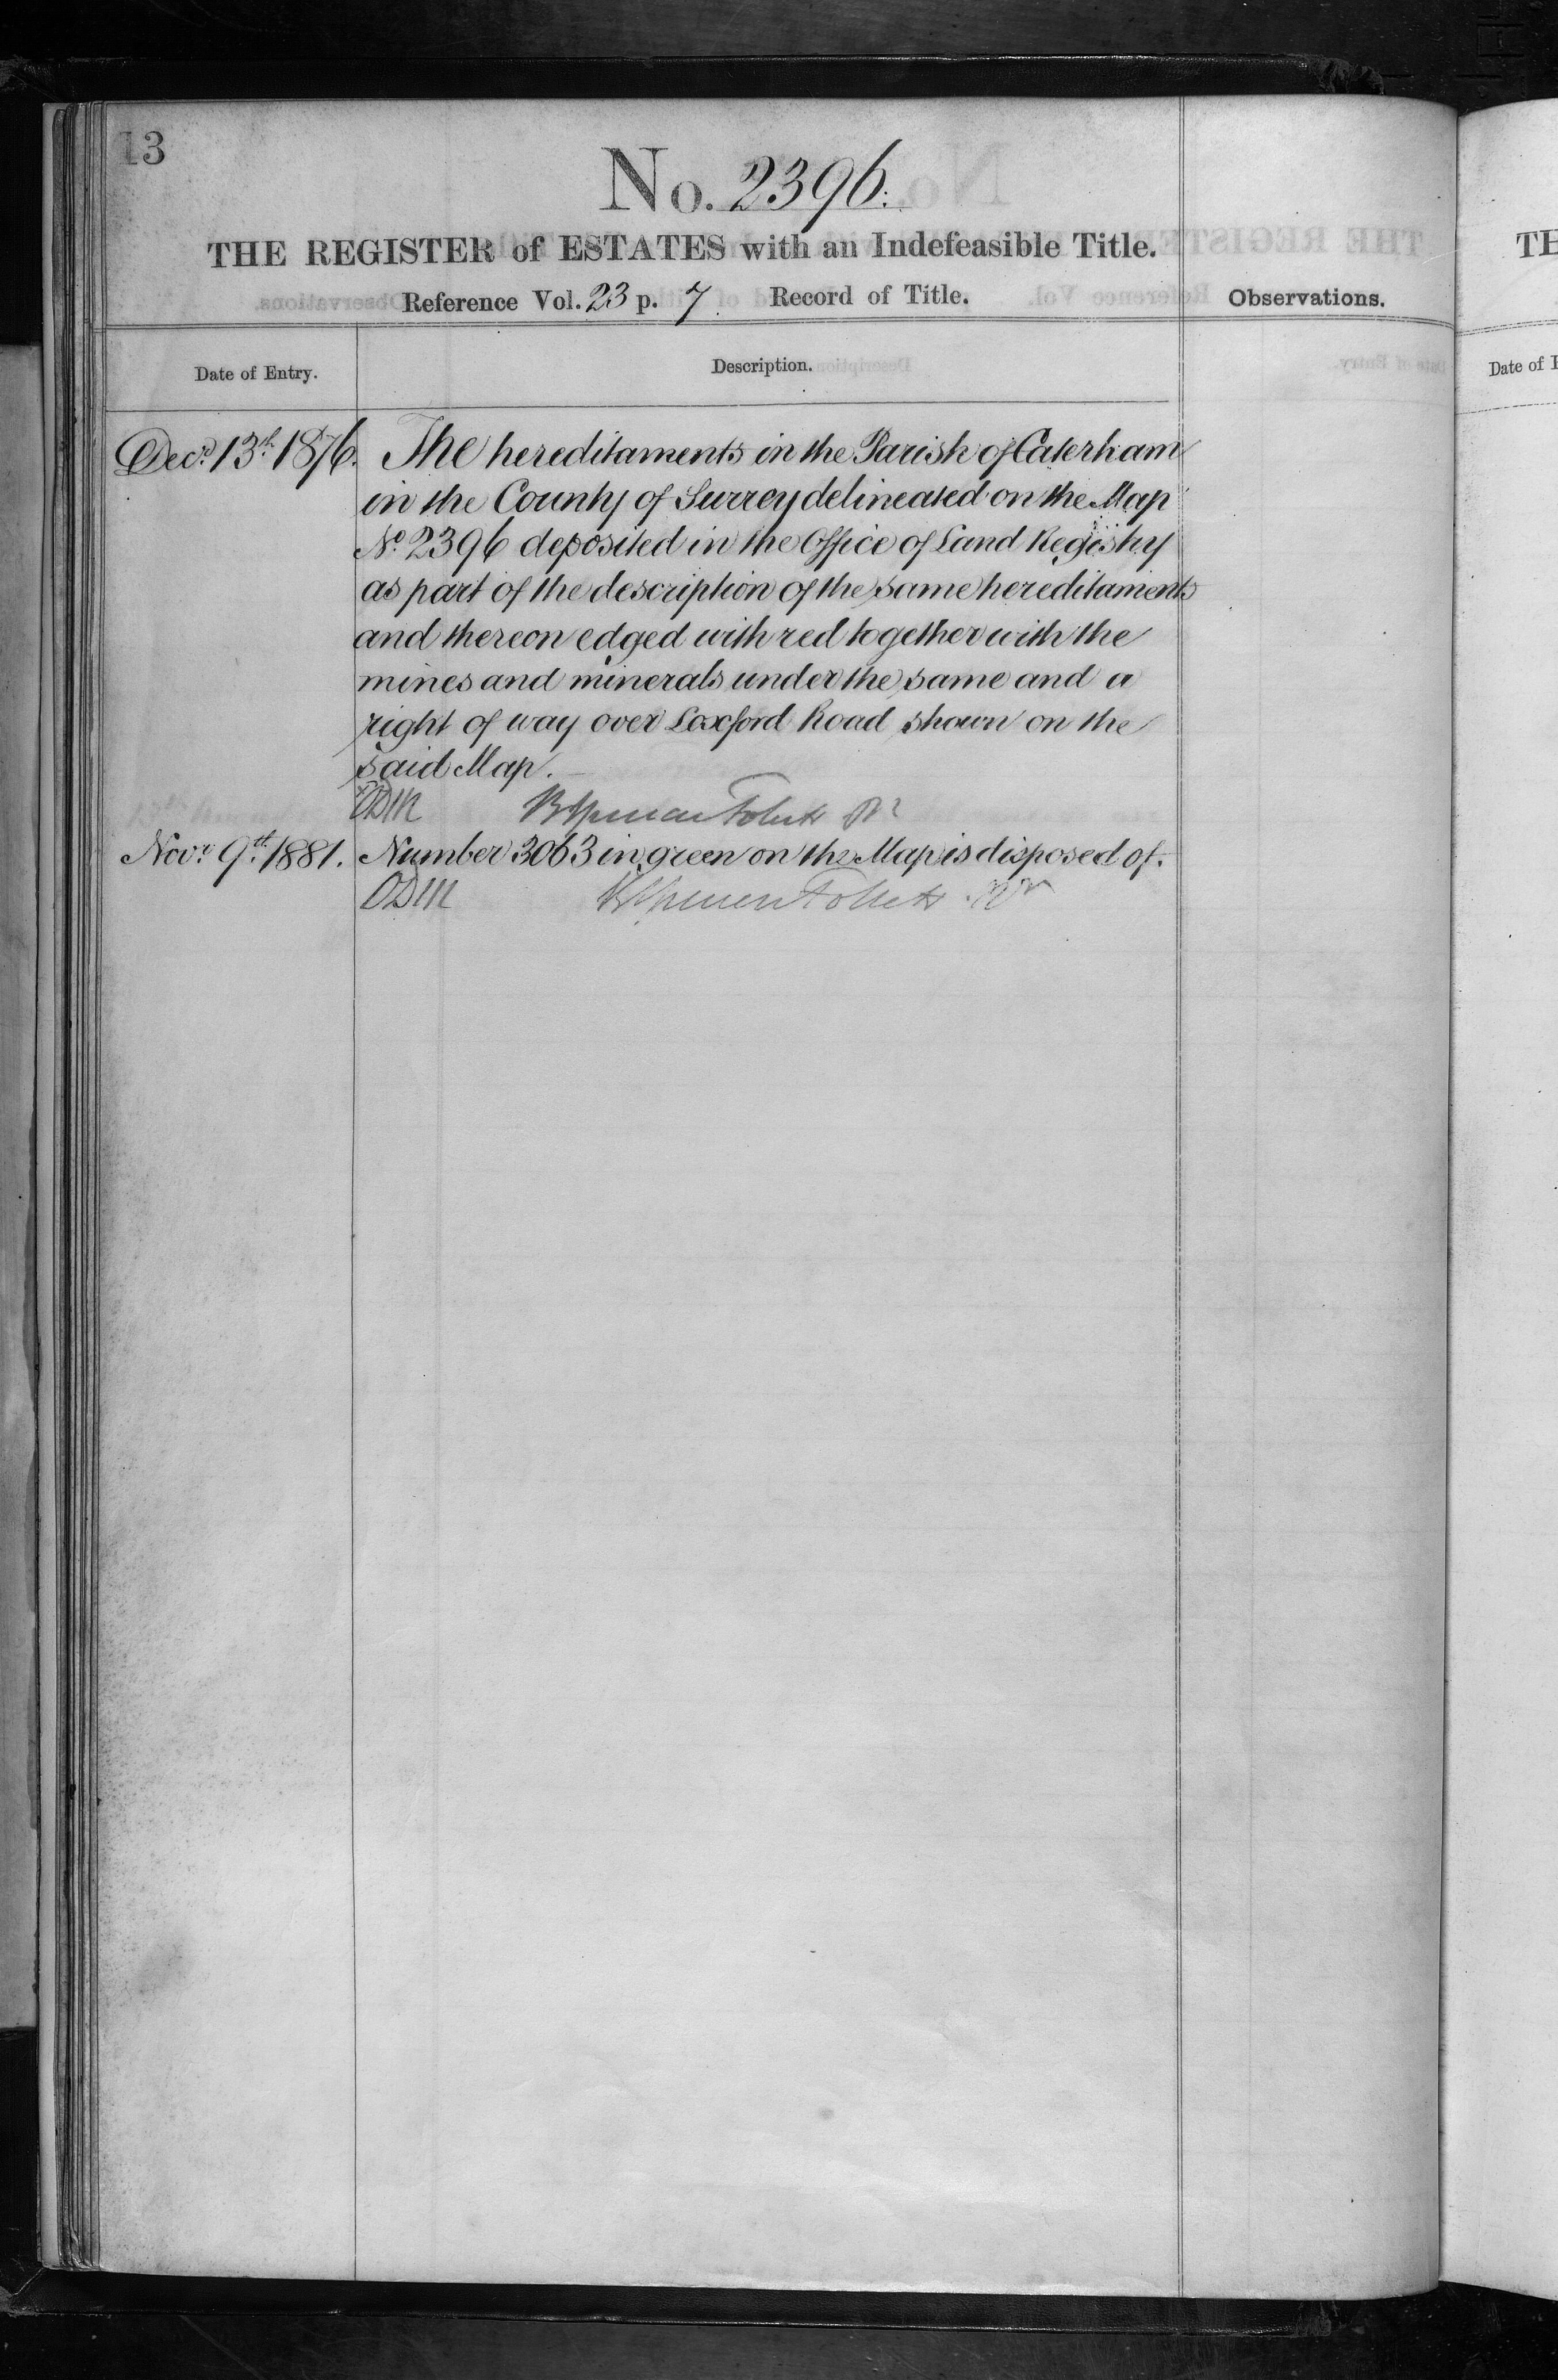 13
No. 2396.
THE REGISTER of ESTATES with an Indefeasible Title.
Reference Vol. 23 p. 7 Record of Title.
Observations.
Date of Entry.
Description.
Decr. 13th 1876. The hereditaments in the Parish of Caterham
in the County of Surrey delineated on the Map
No. 2396 deposited in the Office of Land Registry
as part of the description of the same hereditaments
and thereon edged with red together with the
mines and minerals under the same and a
right of way over Loxford Road shown on the
said Map.
Follett
Novr. 9th. 1881. Number 3063 in green on the Map is disposed of.
ODM Follett
TH
Date of E